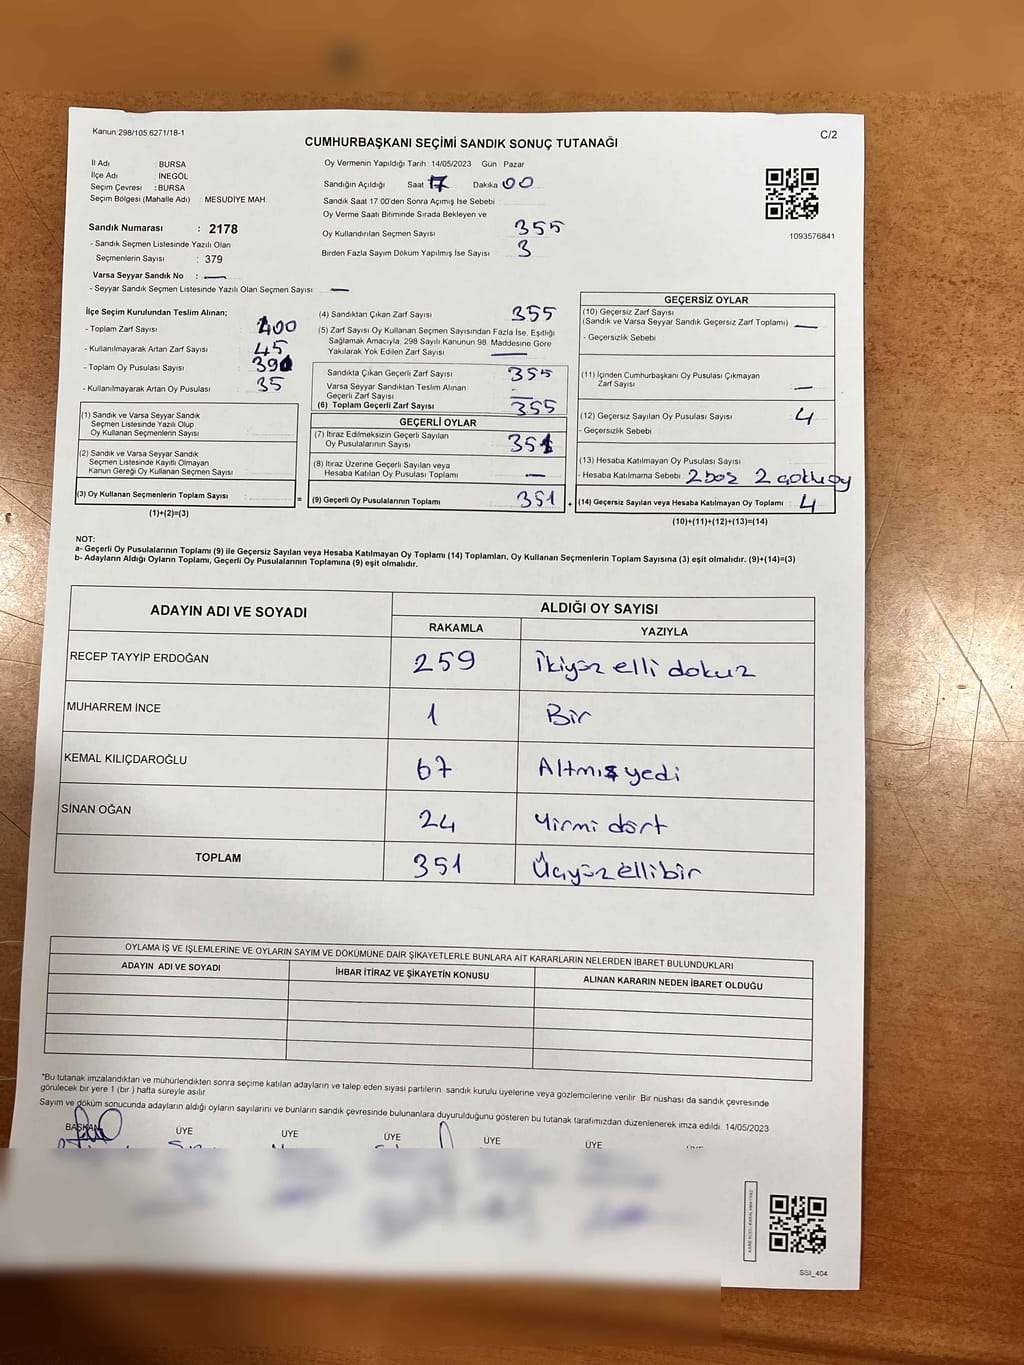 Kanun:298/105.6271/18-1
C/2
CUMHURBAŞKANI SEÇİMİ SANDIK SONUÇ TUTANAĞI
İl Adı : BURSA
İlçe Adı : İNEGÖL
Seçim Çevresi : BURSA
Seçim Bölgesi (Mahalle Adı) : MESUDİYE MAH
Sandık Numarası : 2178
- Sandık Seçmen Listesinde Yazılı Olan
Seçmenlerin Sayısı : 379
Varsa Seyyar Sandık No : —
- Seyyar Sandık Seçmen Listesinde Yazılı Olan Seçmen Sayısı —
Oy Vermenin Yapıldığı Tarih : 14/05/2023 Gün : Pazar
Sandığın Açıldığı Saat 17 Dakika 00
Sandık Saat 17:00'den Sonra Açımış İse Sebebi
Oy Verme Saati Bitiminde Sırada Bekleyen ve
Oy Kullandırılan Seçmen Sayısı 355
Birden Fazla Sayım Döküm Yapılmış İse Sayısı 3
1093576841
İlçe Seçim Kurulundan Teslim Alınan;
- Toplam Zarf Sayısı : 400
- Kullanılmayarak Artan Zarf Sayısı : 45
- Toplam Oy Pusulası Sayısı : 390
- Kullanılmayarak Artan Oy Pusulası : 35
(1) Sandık ve Varsa Seyyar Sandık
Seçmen Listesinde Yazılı Olup
Oy Kullanan Seçmenlerin Sayısı
(2) Sandık ve Varsa Seyyar Sandık
Seçmen Listesinde Kayıtlı Olmayan
Kanun Gereği Oy Kullanan Seçmen Sayısı
(3) Oy Kullanan Seçmenlerin Toplam Sayısı =
(1)+(2)=(3)
(4) Sandıktan Çıkan Zarf Sayısı 355
(5) Zarf Sayısı Oy Kullanan Seçmen Sayısından Fazla İse, Eşitliği
Sağlamak Amacıyla, 298 Sayılı Kanunun 98. Maddesine Göre
Yakılarak Yok Edilen Zarf Sayısı —
Sandıkta Çıkan Geçerli Zarf Sayısı 355
Varsa Seyyar Sandıktan Teslim Alınan
Geçerli Zarf Sayısı —
(6) Toplam Geçerli Zarf Sayısı 355
GEÇERLİ OYLAR
(7) İtiraz Edilmeksizin Geçerli Sayılan
Oy Pusulalarının Sayısı 351
(8) İtiraz Üzerine Geçerli Sayılan veya
Hesaba Katılan Oy Pusulası Toplamı —
(9) Geçerli Oy Pusulalarının Toplamı 351 +
GEÇERSİZ OYLAR
(10) Geçersiz Zarf Sayısı
(Sandık ve Varsa Seyyar Sandık Geçersiz Zarf Toplamı) —
- Geçersizlik Sebebi
(11) İçinden Cumhurbaşkanı Oy Pusulası Çıkmayan
Zarf Sayısı —
(12) Geçersiz Sayılan Oy Pusulası Sayısı 4
- Geçersizlik Sebebi
(13) Hesaba Katılmayan Oy Pusulası Sayısı
- Hesaba Katılmama Sebebi 2 boş 2 çoklu oy
(14) Geçersiz Sayılan veya Hesaba Katılmayan Oy Toplamı 4
(10)+(11)+(12)+(13)=(14)
NOT:
a- Geçerli Oy Pusulalarının Toplamı (9) ile Geçersiz Sayılan veya Hesaba Katılmayan Oy Toplamı (14) Toplamları, Oy Kullanan Seçmenlerin Toplam Sayısına (3) eşit olmalıdır. (9)+(14)=(3)
b- Adayların Aldığı Oyların Toplamı, Geçerli Oy Pusulalarının Toplamına (9) eşit olmalıdır.
ADAYIN ADI VE SOYADI
ALDIĞI OY SAYISI
RAKAMLA YAZIYLA
RECEP TAYYİP ERDOĞAN 259 İkiyüz elli dokuz
MUHARREM İNCE 1 Bir
KEMAL KILIÇDAROĞLU 67 Altmış yedi
SİNAN OĞAN 24 Yirmi dört
TOPLAM 351 Üçyüz elli bir
OYLAMA İŞ VE İŞLEMLERİNE VE OYLARIN SAYIM VE DÖKÜMÜNE DAİR ŞİKAYETLERLE BUNLARA AİT KARARLARIN NELERDEN İBARET BULUNDUKLARI
ADAYIN ADI VE SOYADI İHBAR İTİRAZ VE ŞİKAYETİN KONUSU ALINAN KARARIN NEDEN İBARET OLDUĞU
"Bu tutanak imzalandıktan ve mühürlendikten sonra seçime katılan adayların ve talep eden siyasi partilerin sandık kurulu üyelerine veya gözlemcilerine verilir. Bir nushası da sandık çevresinde
görülecek bir yere 1 (bir ) hafta süreyle asılır.
Sayım ve döküm sonucunda adayların aldığı oyların sayılarını ve bunların sandık çevresinde bulunanlara duyurulduğunu gösteren bu tutanak tarafımızdan düzenlenerek imza edildi. 14/05/2023
BAŞKAN ÜYE ÜYE ÜYE ÜYE ÜYE
SSI_404